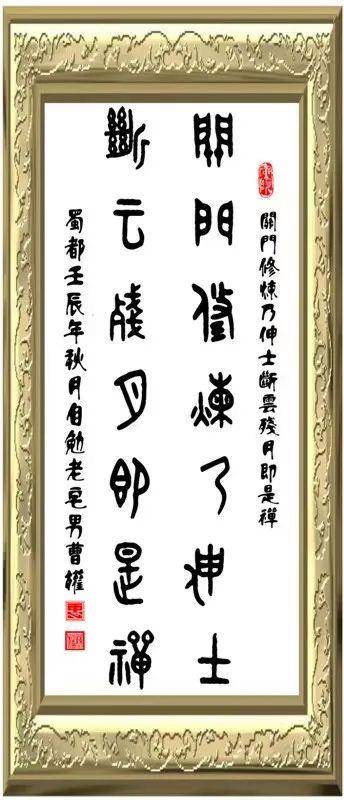 關門修煉乃伸士斷雲殘月即是禪
關門修煉乃伸士
斷云殘月即是禪
蜀都壬辰年秋月自勉老皂男曹權